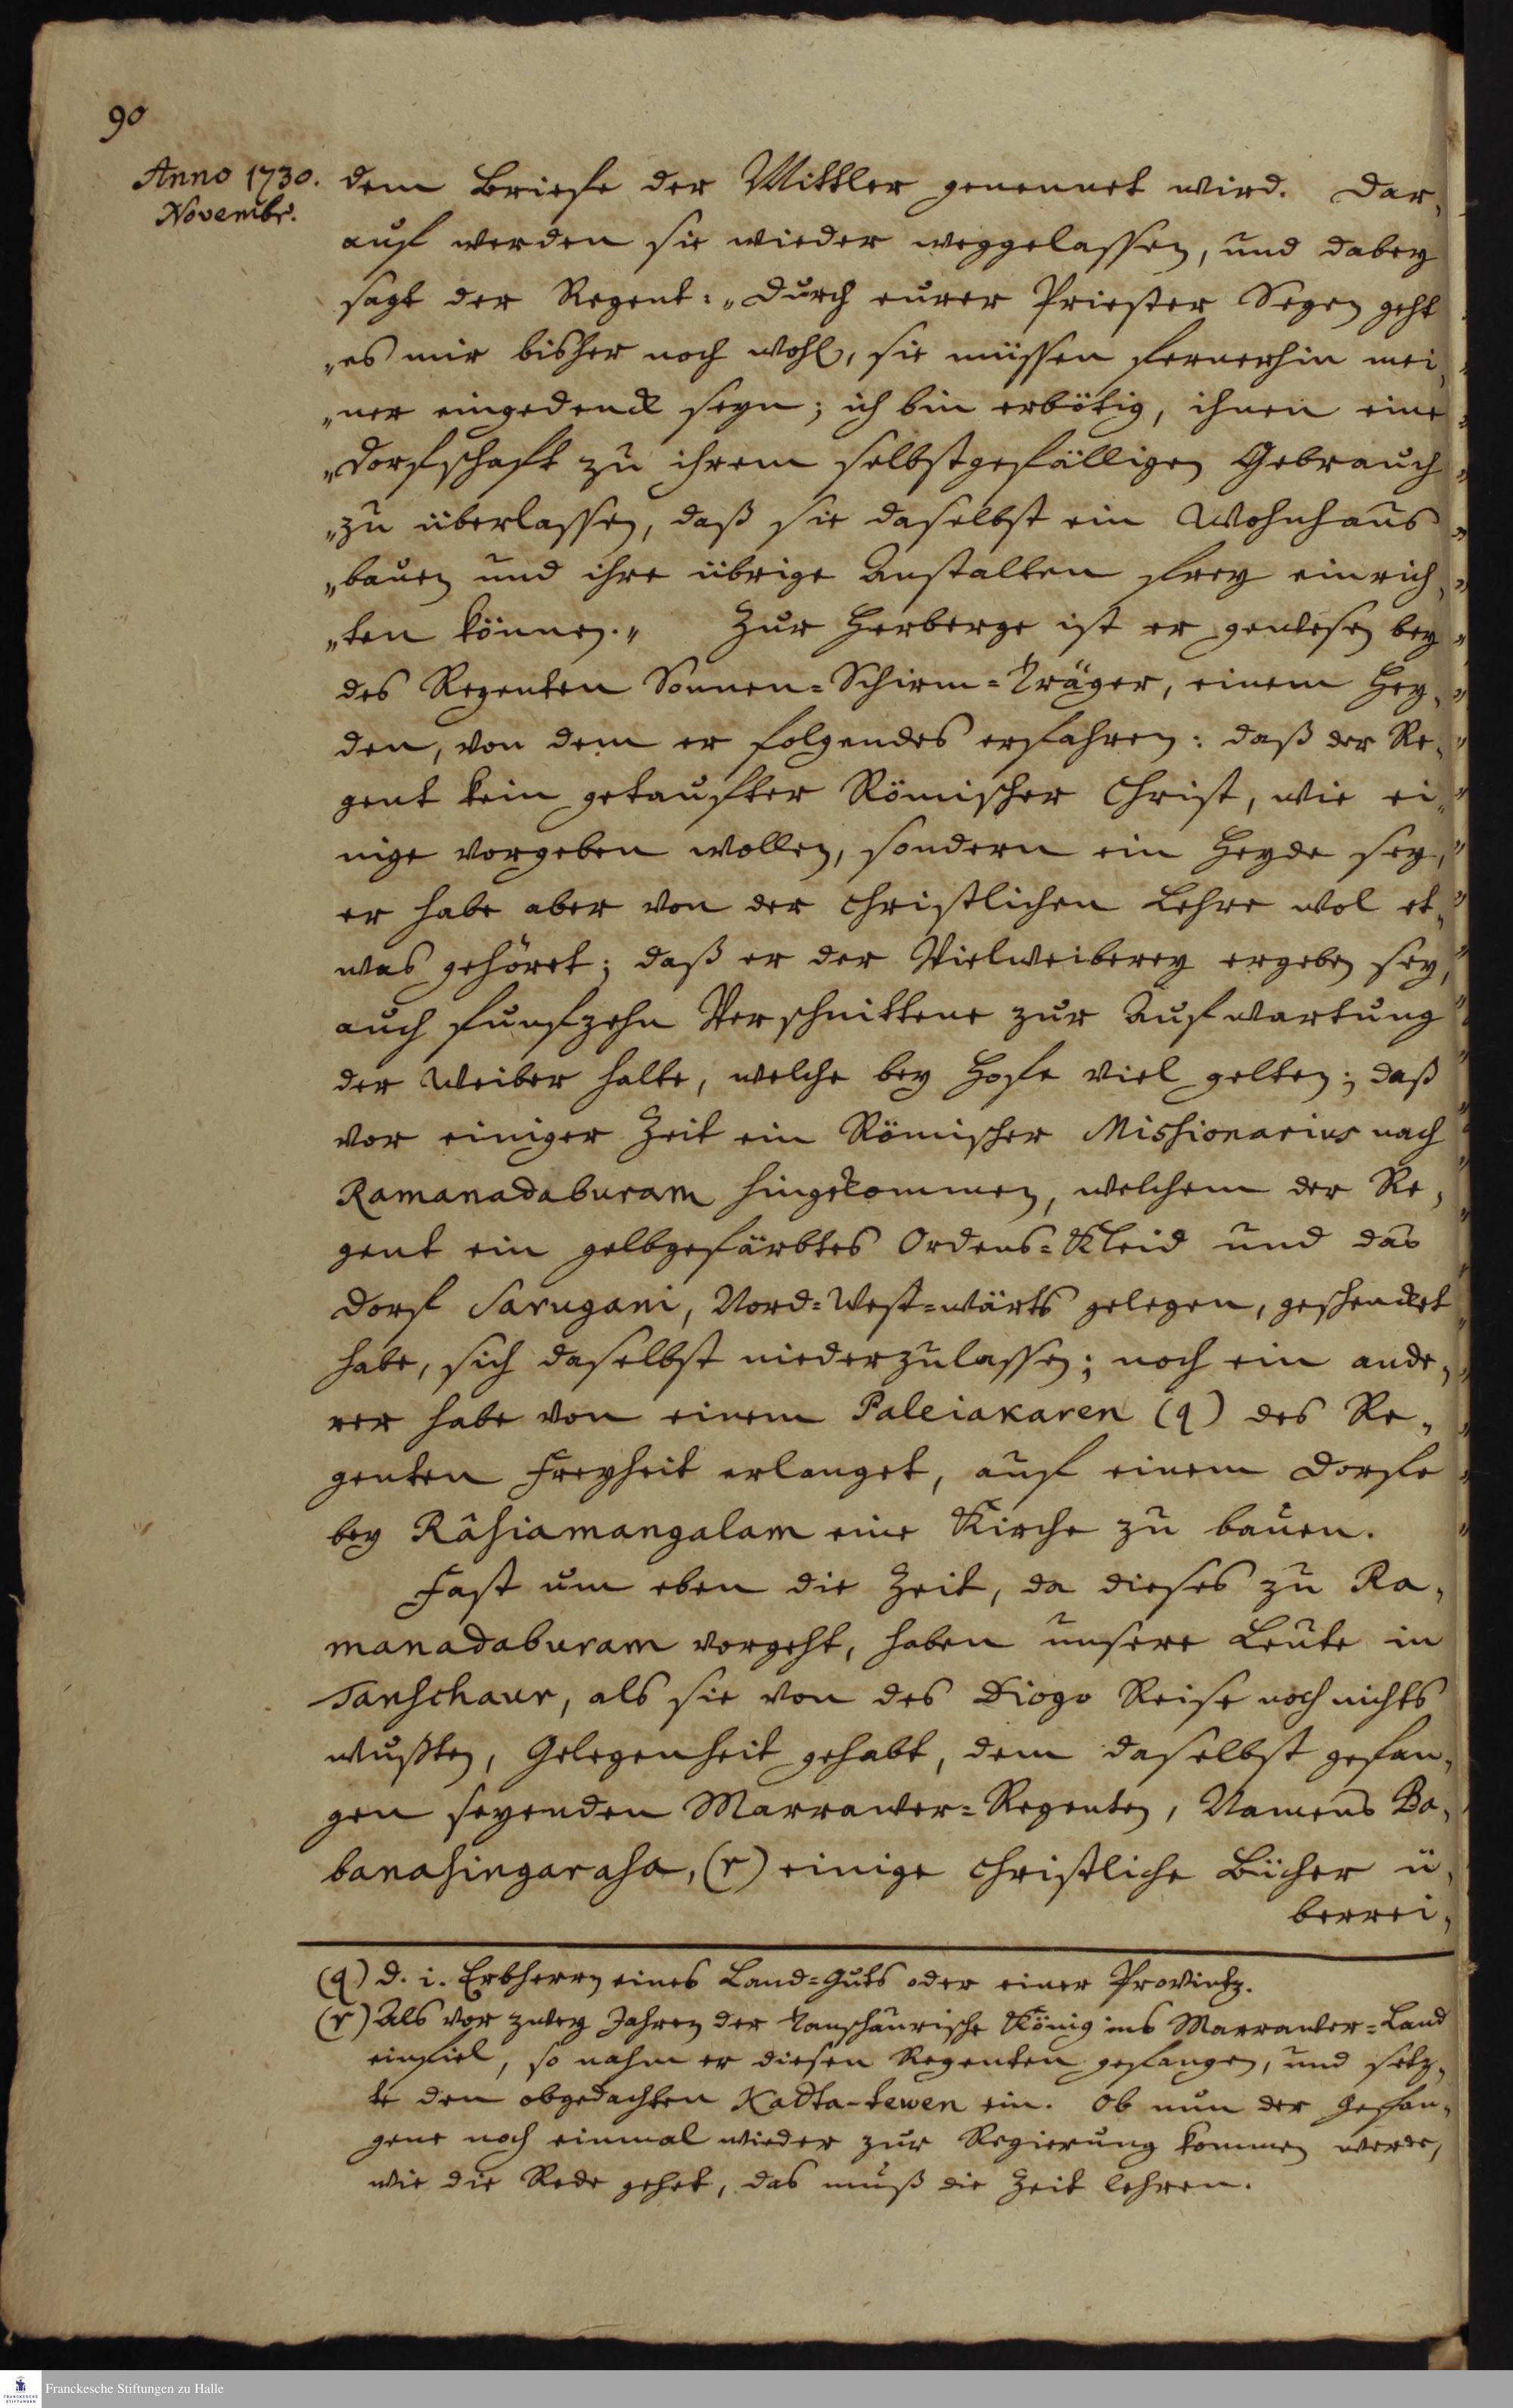 90
Anno 1730.
Novembr.
dem Briefe der Mittler genennet wird. Dar„
auf werden sie wieder weggelassen, und dabey
sagt der Regent: „Durch eurer Priester Segen geht
„es mir bisher noch wohl, sie müssen fernerhin mei„
„ner eingedenck seyn; ich bin erbötig, ihnen eine
„Dorfschaft zu ihrem selbstgefälligen Gebrauch
„zu überlassen, daß sie daselbst ein Wohnhaus
„bauen und ihre übrige Anstalten frey einrich„
„ten können.„ Zur Herberge ist er gewesen bey
des Regenten Sonnen=Schirm=Träger, einem Hey„
den, von dem er folgendes erfahren: daß der Re„
gent kein getaufter Römischer Christ, wie ei„
nige vorgeben wollen, sondern ein Heyde sey,
er habe aber von der christlichen Lehre wol et„
was gehöret; daß er der Vielweiberey ergeben sey,
auch funfzehn Verschnittene zur Aufwartung
der Weiber halte, welche bey Hofe viel gelten; daß
vor einiger Zeit ein Römischer Missionarius nach
Ramanadaburam hingekommen, welchem der Re„
gent ein gelbgefärbtes Ordens=Kleid und das
Dorf Sarugani, Nord=West=wärts gelegen, geschencket
habe, sich daselbst niederzulassen; noch ein ande„
rer habe von einem Paleiakaren (q) des Re„
genten Freyheit erlanget, auf einem Dorfe
bey Râsiamangalam eine Kirche zu bauen.
Fast um eben die Zeit, da dieses zu Ra„
manadaburam vorgeht, haben unsere Leute in
Tanschaur, als sie von des Diogo Reise noch nichts
wußten, Gelegenheit gehabt, dem daselbst gefan„
gen seyenden Marrawer=Regenten, Namens Ba„
banasingarasa, (r) einige christliche Bücher ü„
berrei„
(q) d. i. Erbherrn eines Land=Guts oder einer Provintz.
(r) Als vor zwey Jahren der Tanschaurische König ins Marrawer=Land
einfiel, so nahm er diesen Regenten gefangen, und setz„
te den obgedachten Kadta-tewen ein. Ob nun der Gefan„
gene noch einmal wieder zur Regierung kommen werde,
wie die Rede gehet, das muß die Zeit lehren.
Franckesche Stiftungen zu Halle
FRANCKESCHE
STIFTUNGEN